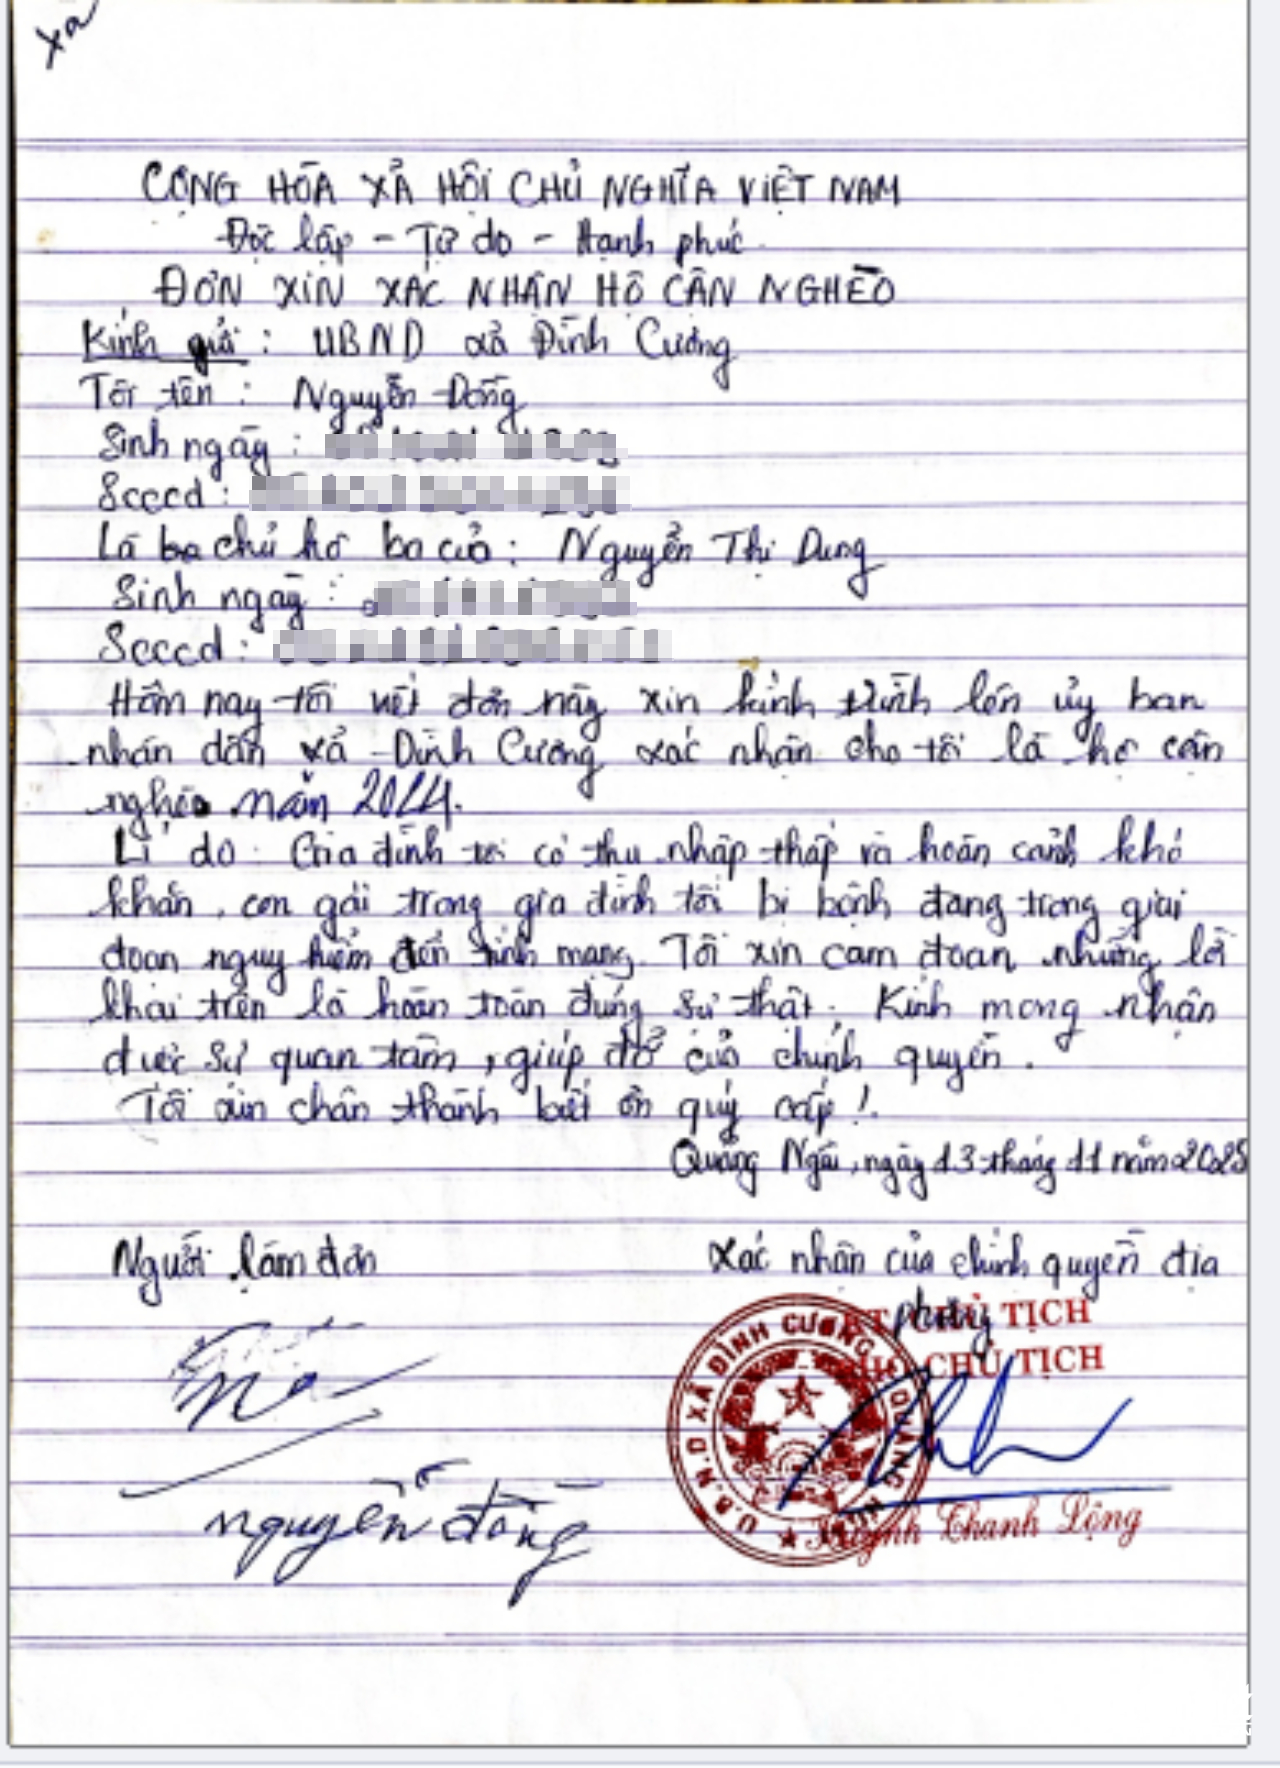 xa
CỘNG HÒA XÃ HỘI CHỦ NGHĨA VIỆT NAM
Độc lập - Tự do - Hạnh phúc
ĐƠN XIN XÁC NHẬN HỘ CẬN NGHÈO
Kính gửi : UBND xã Đình Cương
Tôi tên : Nguyễn Đồng
Sinh ngày :
Scccd :
Là ba chủ hộ ba của : Nguyễn Thị Dung
Sinh ngày :
Scccd :
Hôm nay tôi viết đơn này xin kính trình lên ủy ban
nhân dân xã Đình Cương xác nhận cho tôi là hộ cận
nghèo năm
Lí do : Gia đình tôi có thu nhập thấp và hoàn cảnh khó
khăn, con gái trong gia đình tôi bị bệnh đang trong giai
đoạn nguy hiểm đến tính mạng. Tôi xin cam đoan những lời
khai trên là hoàn toàn đúng sự thật. Kính mong nhận
được sự quan tâm, giúp đỡ của chính quyền.
Tôi xin chân thành biết ơn quý cấp !.
Quảng Ngãi, ngày 13 tháng 11 năm 2025
Người làm đơn
Xác nhận của chính quyền địa
phương
KT. CHỦ TỊCH
PHÓ CHỦ TỊCH
U.B.N.D XÃ ĐÌNH CƯƠNG
Nguyễn Đồng
Huỳnh Thanh Lộng